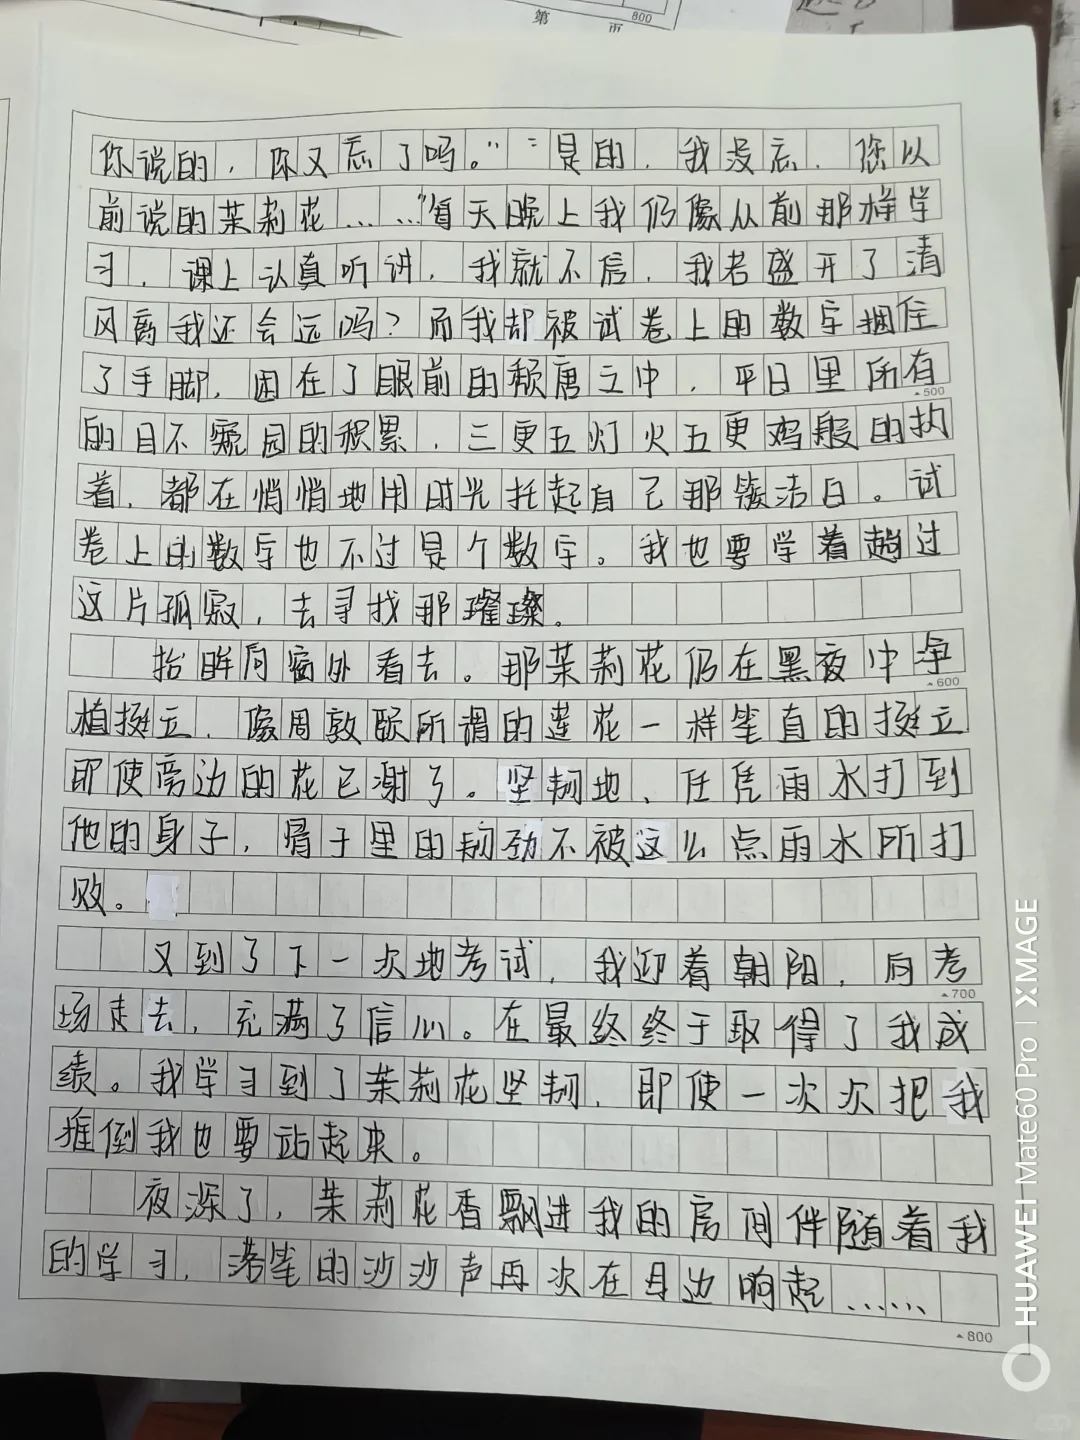 第 页 800
你说的，你又忘了吗。”“是的，我没忘，您以
前说的茉莉花……”每天晚上我仍像从前那样学
习，课上认真听讲，我就不信，我若盛开了清
风离我还会远吗？而我却被试卷上的数字捆住
了手脚，困在了眼前的颓唐之中，平日里所有
▲500
的目不窥园的积累，三更五灯火五更鸡般的执
着，都在悄悄地用时光托起自己那簇洁白。试
卷上的数字也不过是个数字。我也要学着趟过
这片孤寂，去寻找那璀璨。
抬眸向窗外看去。那茉莉花仍在黑夜中净
▲600
植挺立，像周敦颐所谓的莲花一样笔直的挺立
即使旁边的花已谢了。坚韧地、任凭雨水打到
他的身子，骨子里的韧劲不被这么点雨水所打
败。
又到了下一次地考试，我迎着朝阳，向考
▲700
场走去，充满了信心。在最终终于取得了我成
绩。我学习到了茉莉花坚韧，即使一次次把我
推倒我也要站起来。
夜深了，茉莉花香飘进我的房间伴随着我
的学习，落笔的沙沙声再次在身边响起……
▲800
HUAWEI Mate60 Pro | XMAGE